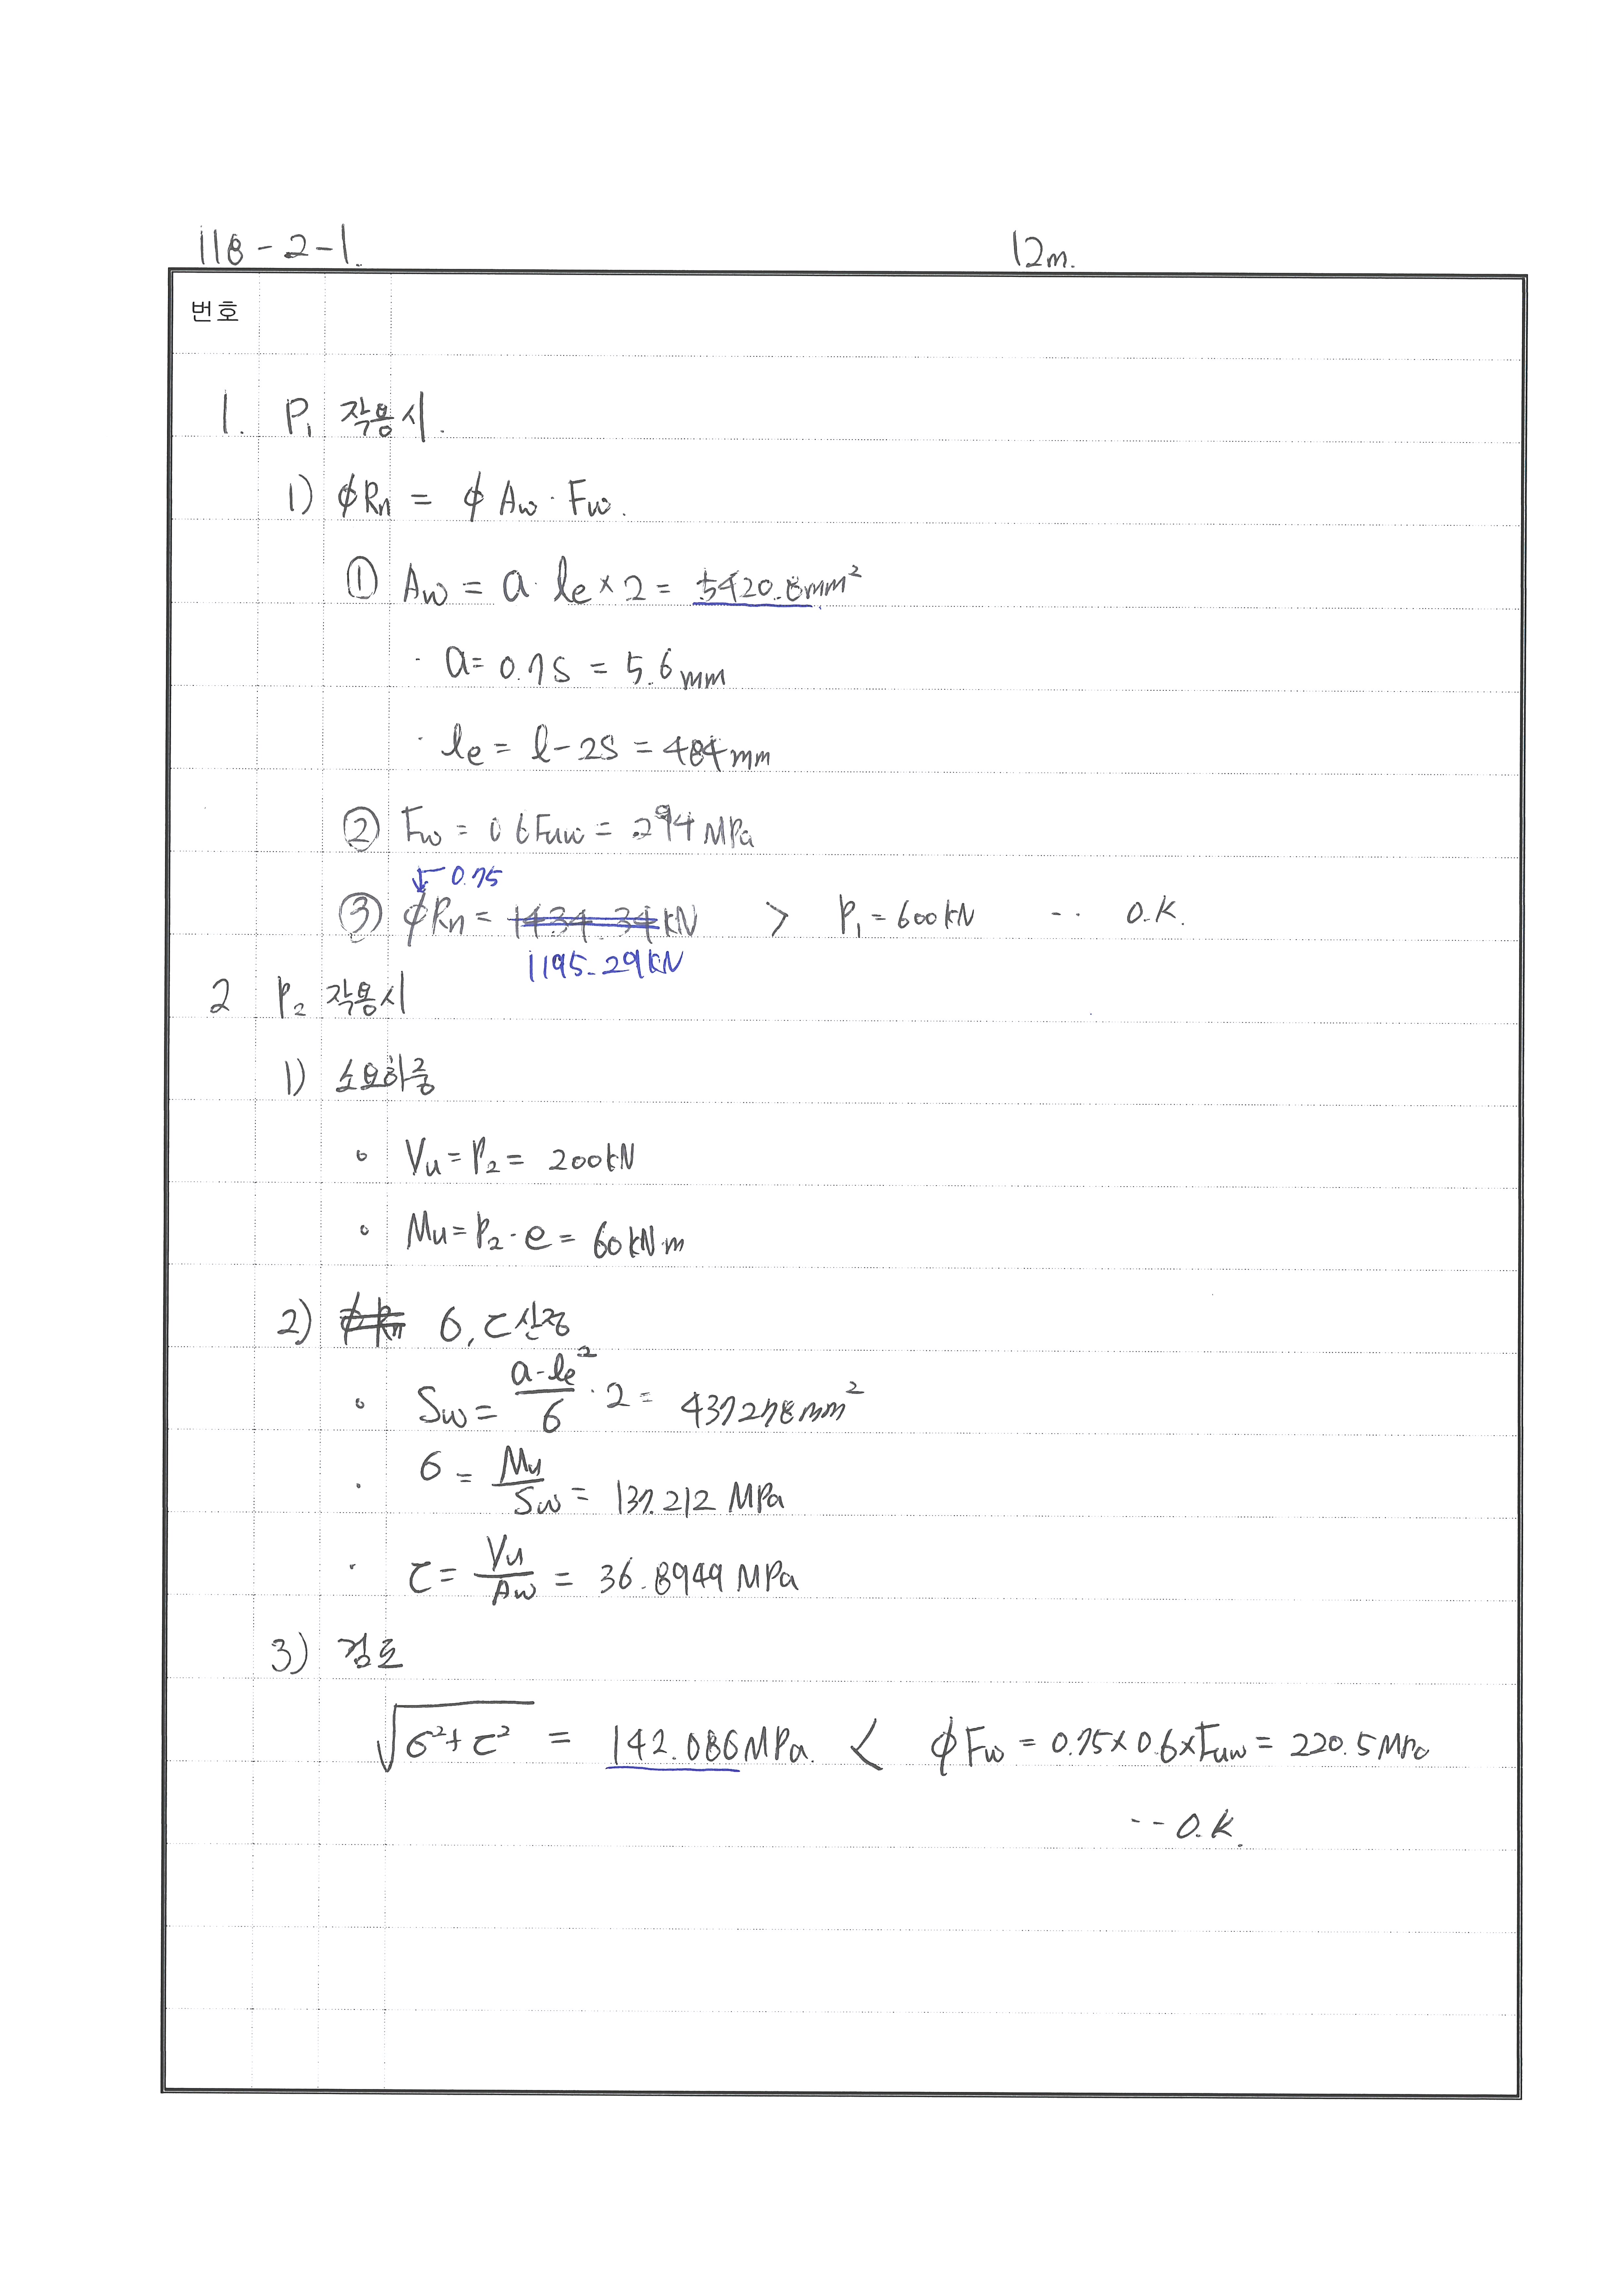 118-2-1.
12m.
번호
1. P₁ 작용시.
1) φRn = φ Aw · Fw.
① Aw = a · le × 2 = 5420.8mm²
· a = 0.7S = 5.6mm
· le = l - 2S = 484mm
② Fw = 0.6Fuw = 294MPa
↓ 0.75
③ φRn = 1434.34kN > P₁ = 600kN -- O.K.
1195.29kN
2 P₂ 작용시
1) 소요하중
∘ Vu = P₂ = 200kN
∘ Mu = P₂ · e = 60kN·m
2) φRn σ, τ 산정
∘ Sw = a·le²/6 · 2 = 437278mm²
· σ = Mu/Sw = 137.212 MPa
· τ = Vu/Aw = 36.8949 MPa
3) 검토
√σ²+τ² = 142.086MPa. < φFw = 0.75×0.6×Fuw = 220.5MPa
-- O.K.